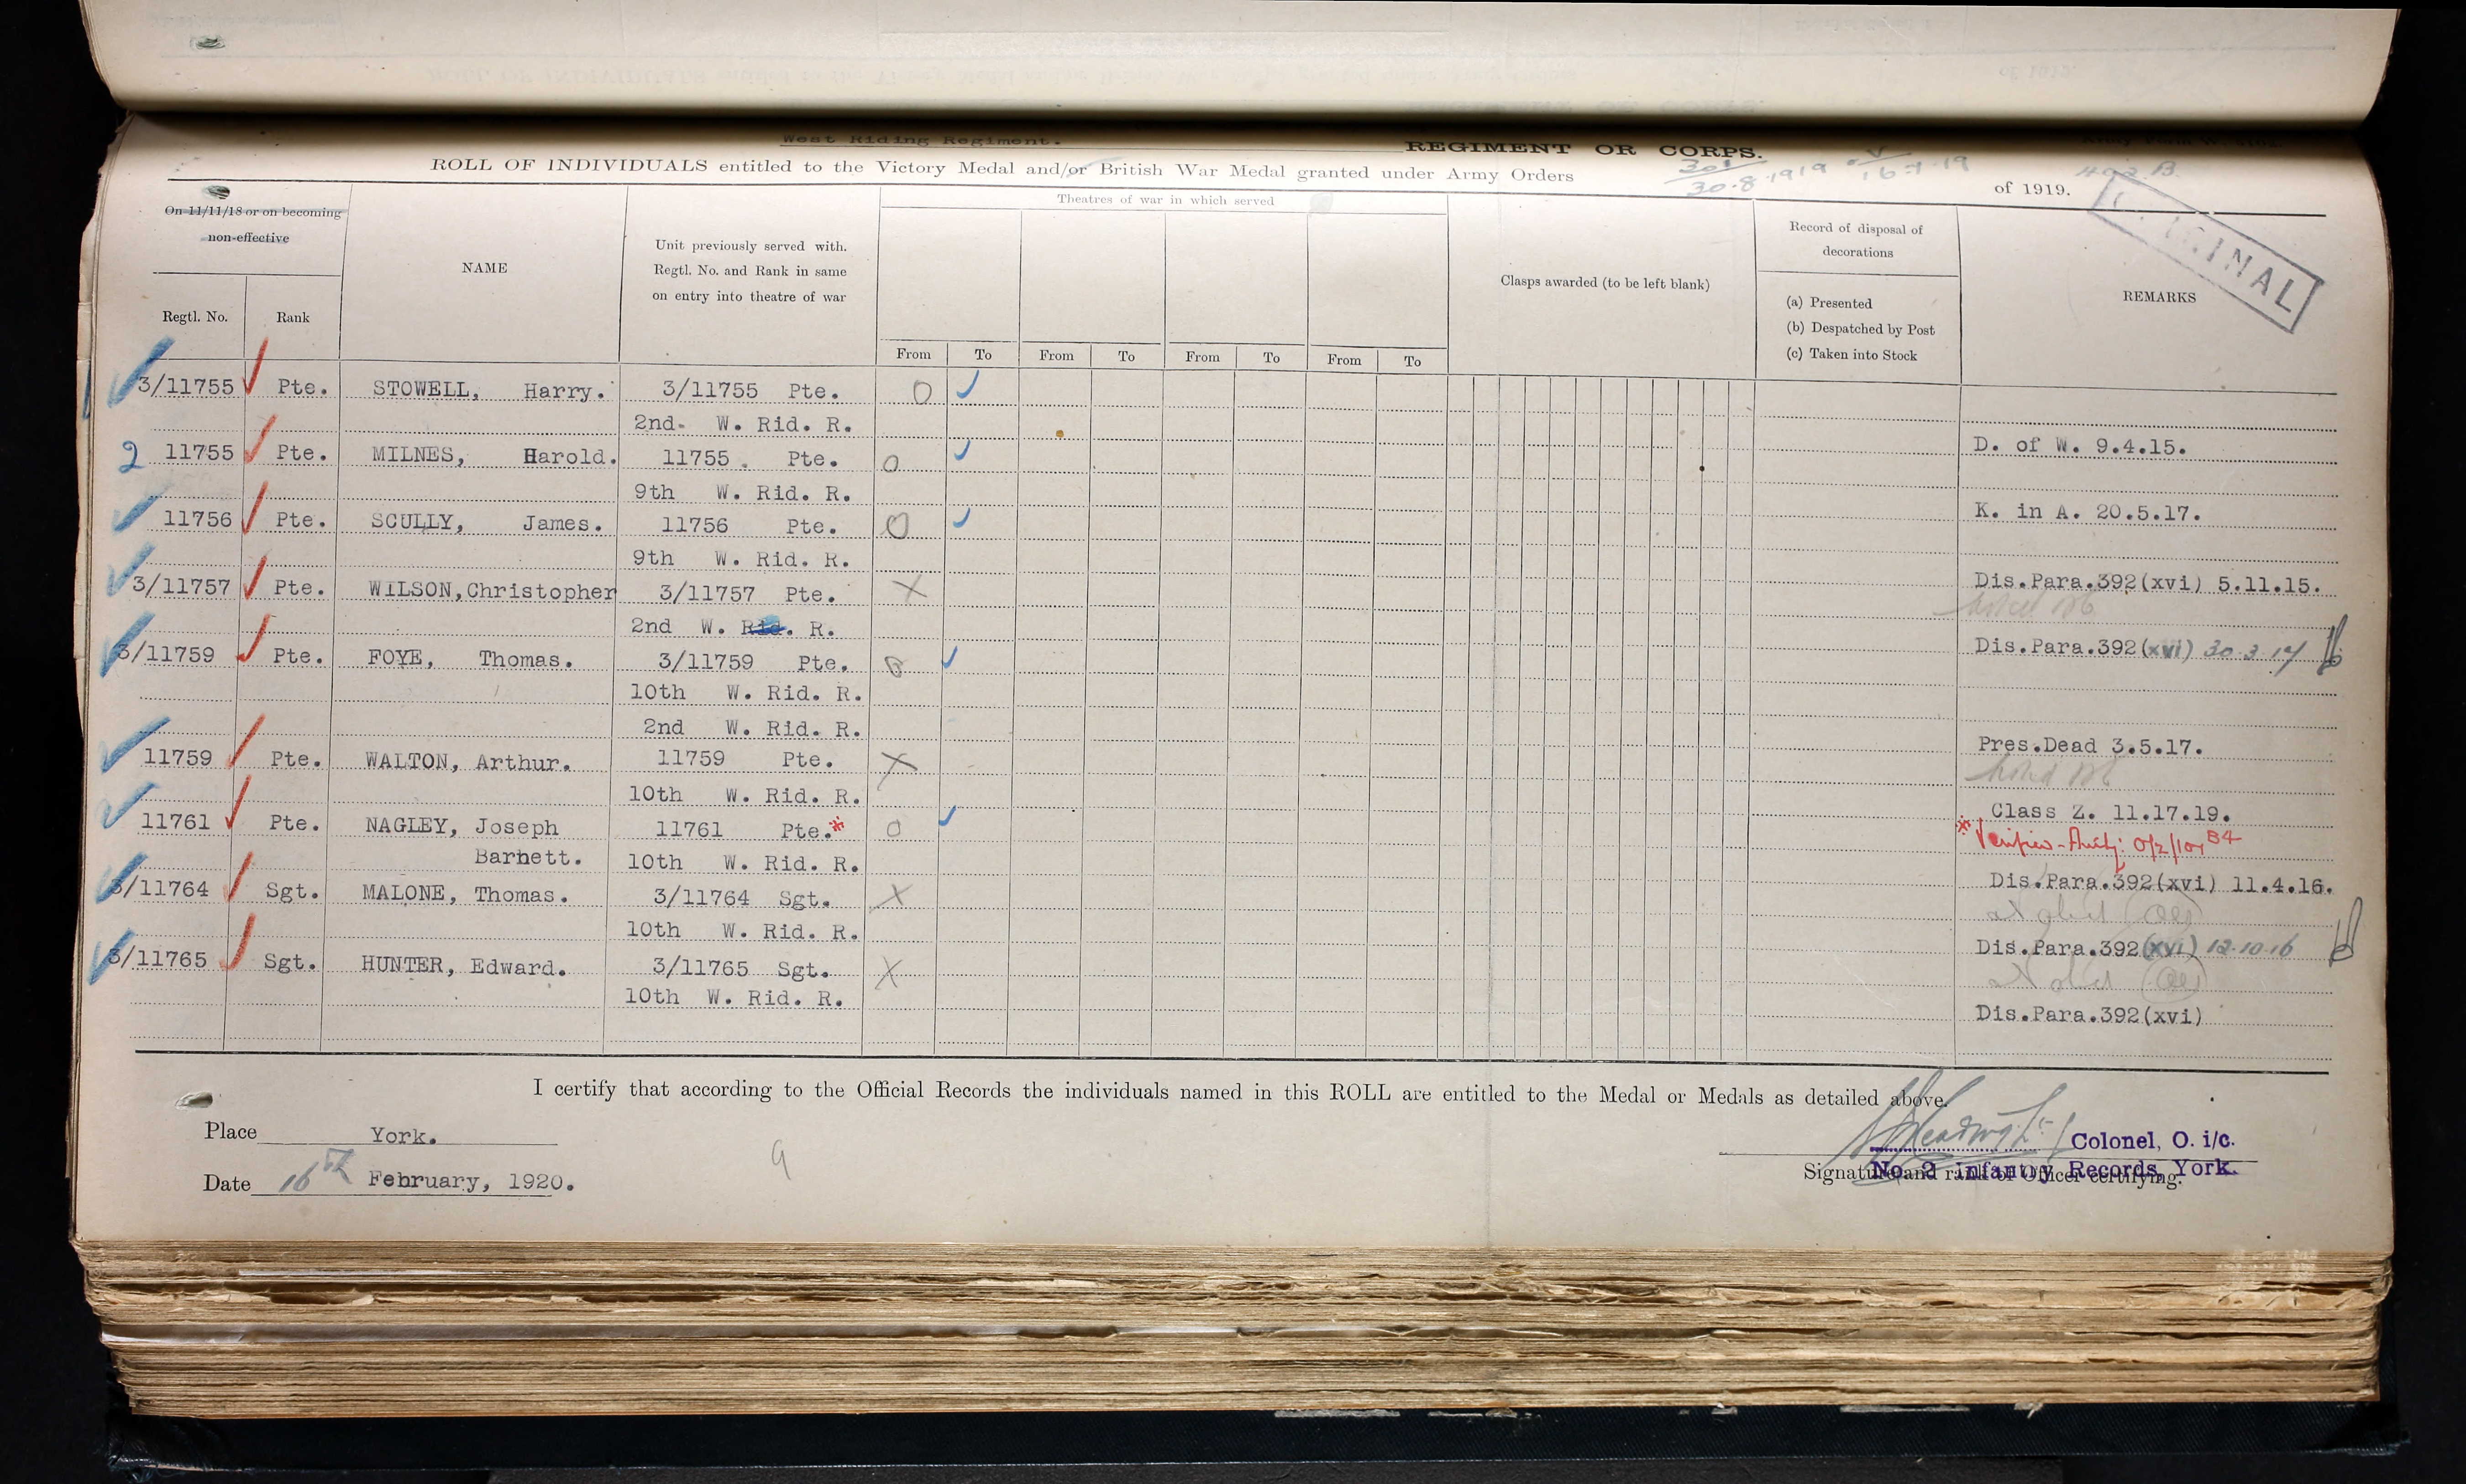 West Riding Regiment. REGIMENT OR CORPS.
ROLL OF INDIVIDUALS entitled to the Victory Medal and/or British War Medal granted under Army Orders 301/30.8.1919 of 1919.
ORIGINAL
On 11/11/18 or on becoming
non-effective
Regtl. No.
Rank
NAME
Unit previously served with.
Regtl. No. and Rank in same
on entry into theatre of war
Theatres of war in which served
From To From To From To From To
Clasps awarded (to be left blank)
Record of disposal of
decorations
(a) Presented
(b) Despatched by Post
(c) Taken into Stock
REMARKS
3/11755 Pte. STOWELL, Harry. 3/11755 Pte. O
2nd- W. Rid. R. D. of W. 9.4.15.
2 11755 Pte. MILNES, Harold. 11755 Pte. O
9th W. Rid. R. K. in A. 20.5.17.
11756 Pte. SCULLY, James. 11756 Pte. O
9th W. Rid. R. Dis.Para.392(xvi) 5.11.15.
3/11757 Pte. WILSON, Christopher 3/11757 Pte. X
2nd W. Rid. R. Dis.Para.392(xvi) 30.3.17
3/11759 Pte. FOYE, Thomas. 3/11759 Pte.
10th W. Rid. R.
2nd W. Rid. R. Pres.Dead 3.5.17.
11759 Pte. WALTON, Arthur. 11759 Pte. X
10th W. Rid. R. Class Z. 11.17.19.
11761 Pte. NAGLEY, Joseph 11761 Pte.* O
* Verified
Barnett. 10th W. Rid. R. Dis.Para.392(xvi) 11.4.16.
3/11764 Sgt. MALONE, Thomas. 3/11764 Sgt. X
10th W. Rid. R. Dis.Para.392(xvi) 12.10.16
3/11765 Sgt. HUNTER, Edward. 3/11765 Sgt. X
10th W. Rid. R. Dis.Para.392(xvi)
I certify that according to the Official Records the individuals named in this ROLL are entitled to the Medal or Medals as detailed above.
Place York.
Colonel, O. i/c.
No. 2 Infantry Records, York.
Date 16th February, 1920.
Signature and rank of Officer certifying.
9